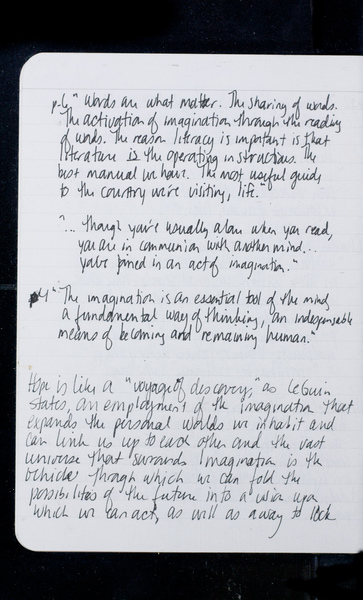 p.6 "Words are what matter. The sharing of words.
The activation of imagination through the reading
of words. The reason literacy is important is that
literature is the operating instructions. The
best manual we have. The most useful guide
to the country we're visiting, life."
"... Though you're usually alone when you read,
you are in communion with another mind...
you've joined in an act of imagination."
p4 "The imagination is an essential tool of the mind
a fundamental way of thinking, an indispensable
means of becoming and remaining human."
Hope is like a "voyage of discovery," as LeGuin
states, an employment of the imagination that
expands the personal worlds we inhabit and
can link us up to each other and the vast
universe that surrounds imagination is the
vehicle though which we can fold the
possibilities of the future into a upon
which we can act, as well as a way to look